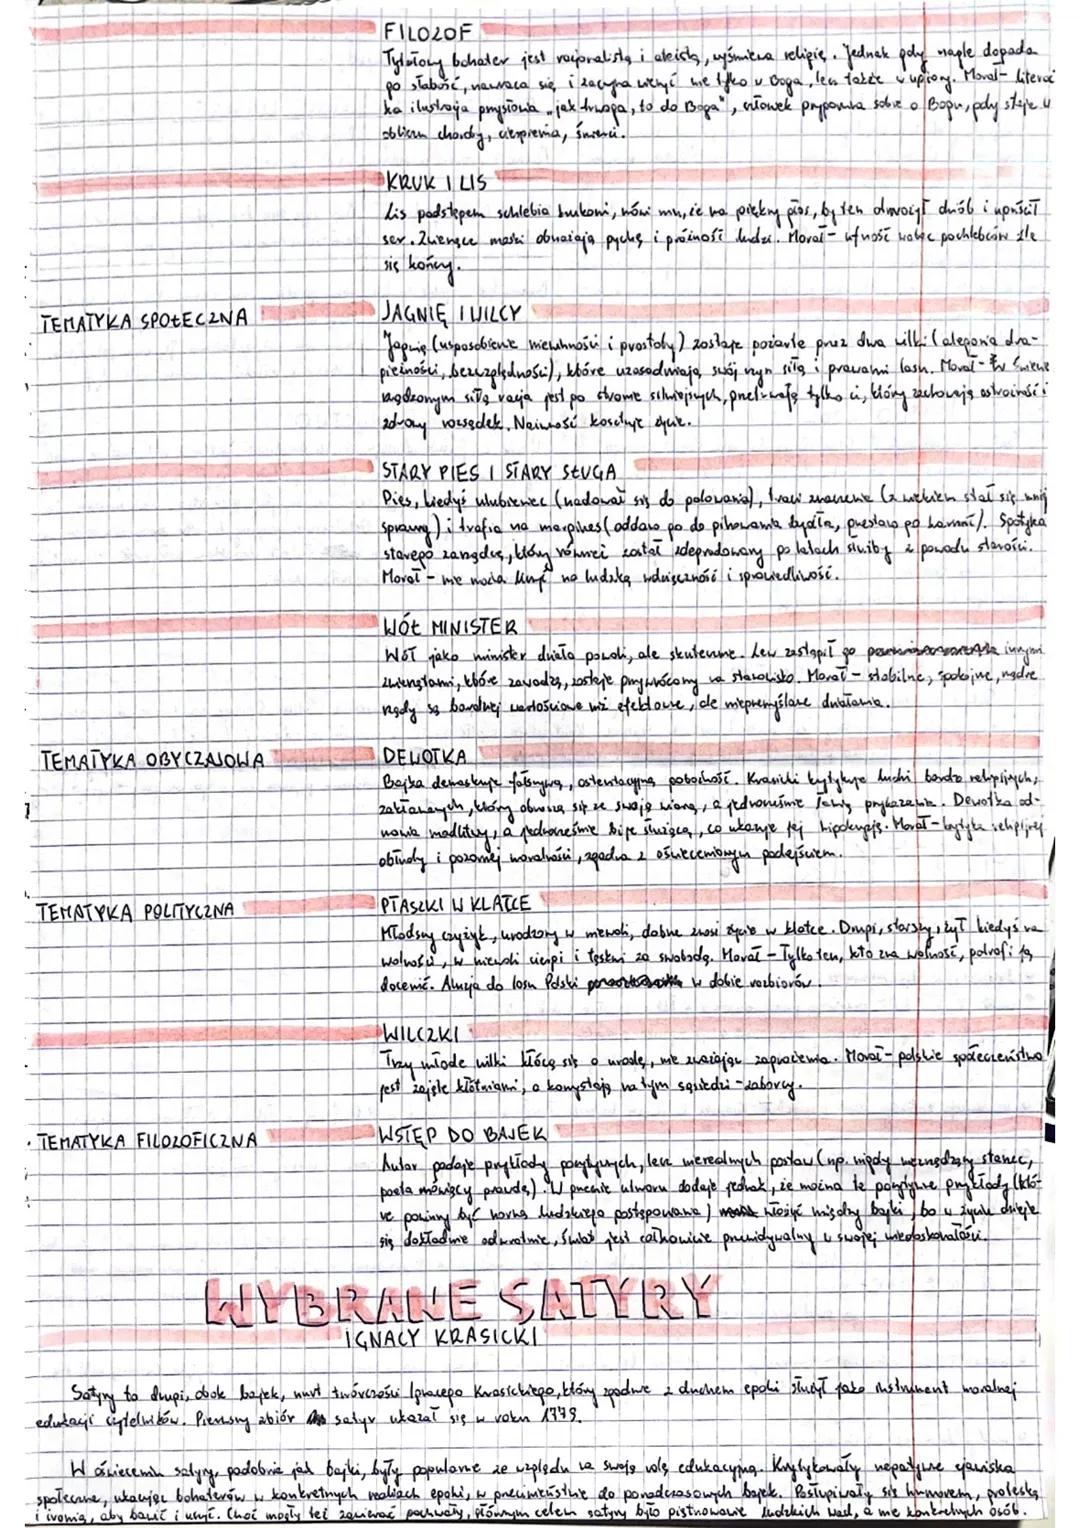 FILOZOF
Tytułowy bohater jest racjonalistą i ateistą, wyśmiewa religię. Jednak gdy nagle dopada
go słabość, nawraca się, i zaczyna wierzyć nie tylko w Boga, lecz także w upiory. Morał - literac
ka ilustracja przysłowia "jak trwoga, to do Boga", człowiek przypomina sobie o Bogu, gdy staje w
obliczu choroby, cierpienia, śmierci.
KRUK I LIS
Lis podstępem schlebia krukowi, mówi mu, że ma piękny głos, by ten otworzył dziób i upuścił
ser. Zwierzęce maski obnażają pychę i próżność ludzi. Morał - ufność wobec pochlebców źle
się kończy.
TEMATYKA SPOŁECZNA
JAGNIĘ I WILCY
Jagnię (uosobienie niewinności i prostoty) zostaje pożarte przez dwa wilki (alegoria dra-
pieżności, bezwzględności), które uzasadniają swój czyn siłą i prawami lasu. Morał - w świecie
rządzonym siłą racja jest po stronie silniejszych, przetrwają tylko ci, którzy zachowają ostrożność i
zdrowy rozsądek. Naiwność kosztuje życie.
STARY PIES I STARY SŁUGA
Pies, kiedyś ulubieniec (nadawał się do polowania), traci znaczenie (z wiekiem stał się mniej
sprawny) i trafia na margines (oddano go do pilnowania bydła, przestano go karmić). Spotyka
starego zarządcę, który również został zdegradowany po latach służby z powodu starości.
Morał - nie można liczyć na ludzką wdzięczność i sprawiedliwość.
WÓŁ MINISTER
Wół jako minister działa powoli, ale skutecznie. Lew zastąpił go innymi
zwierzętami, które zawodzą, zostaje przywrócony na stanowisko. Morał - stabilne, spokojne, mądre
rządy są bardziej wartościowe niż efektowne, ale nieprzemyślane działania.
TEMATYKA OBYCZAJOWA
DEWOTKA
Bajka demaskuje fałszywą, ostentacyjną pobożność. Krasicki krytykuje ludzi bardzo religijnych,
zakłamanych, którzy obnoszą się ze swoją wiarą, a jednocześnie łamią przykazania. Dewotka od-
mawia modlitwy, a jednocześnie bije służącą, co ukazuje jej hipokryzję. Morał - krytyka religijnej
obłudy i pozornej moralności, zgodna z oświeceniowym podejściem.
TEMATYKA POLITYCZNA
PTASZKI W KLATCE
Młodszy czyżyk, urodzony w niewoli, dobrze znosi życie w klatce. Drugi, starszy, żył kiedyś na
wolności, w niewoli cierpi i tęskni za swobodą. Morał - Tylko ten, kto zna wolność, potrafi ją
docenić. Aluzja do losu Polski w dobie rozbiorów.
WILCZKI
Trzy młode wilki kłócą się o urodę, nie zważając zagrożenia. Morał - polskie społeczeństwo
jest zajęte kłótniami, a korzystają na tym sąsiedzi - zaborcy.
TEMATYKA FILOZOFICZNA
WSTĘP DO BAJEK
Autor podaje przykłady pozytywnych, lecz nierealnych postaw (np. nigdy niezrzędzący starzec,
poeta mówiący prawdę). W puencie utworu dodaje jednak, że można te pozytywne przykłady (któ-
re powinny być normą ludzkiego postępowania) włożyć między bajki, bo w życiu dzieje
się dokładnie odwrotnie, świat jest całkowicie przewidywalny w swojej niedoskonałości.
WYBRANE SATYRY
IGNACY KRASICKI
Satyry to drugi, obok bajek, nurt twórczości Ignacego Krasickiego, który zgodnie z duchem epoki służył jako instrument moralnej
edukacji czytelników. Pierwszy zbiór satyr ukazał się w roku 1779.
W oświeceniu satyry, podobnie jak bajki, były popularne ze względu na swoją rolę edukacyjną. Krytykowały negatywne zjawiska
społeczne, ukazując bohaterów w konkretnych realiach epoki, w przeciwieństwie do ponadczasowych bajek. Posługiwały się humorem, groteską
i ironią, aby bawić i uczyć. Choć mogły też zawierać pochwały, głównym celem satyry było piętnowanie ludzkich wad, a nie konkretnych osób.